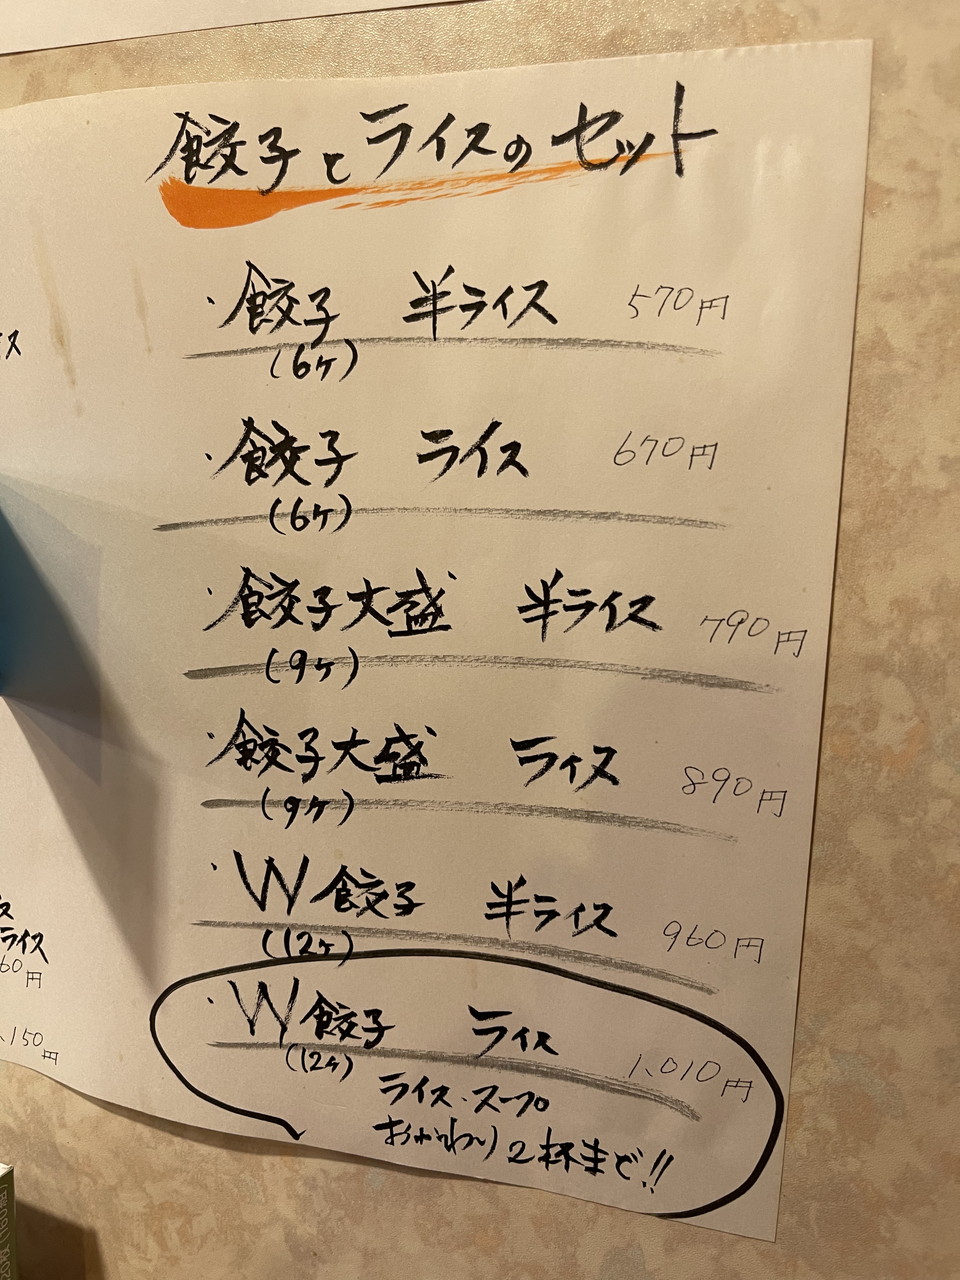 餃子とライスのセット
・餃子 半ライス 570円
(6ケ)
・餃子 ライス 670円
(6ケ)
・餃子大盛 半ライス 790円
(9ケ)
・餃子大盛 ライス 890円
(9ケ)
・W餃子 半ライス 960円
(12ケ)
・W餃子 ライス 1,010円
(12ケ)
ライス・スープ
おかわり2杯まで!!
ス
ライス
60円
150円